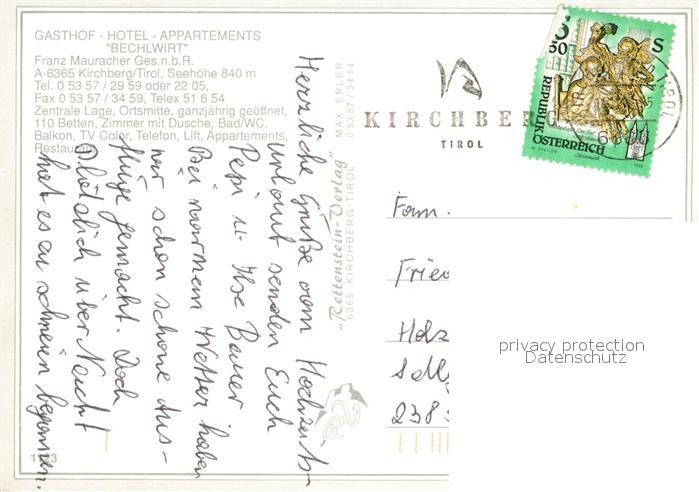 GASTHOF - HOTEL - APPARTEMENTS
"BECHLWIRT"
Franz Mauracher Ges.n.b.R.
A-6365 Kirchberg/Tirol, Seehöhe 840 m
Tel. 0 53 57 / 29 59 oder 22 05,
Fax 0 53 57 / 34 59, Telex 51 6 54
Zentrale Lage, Ortsmitte, ganzjährig geöffnet,
110 Betten, Zimmer mit Dusche, Bad/WC,
Balkon, TV Color, Telefon, Lift, Appartements,
Restaurant
Herzliche Grüße vom Hochzeits-
urlaub senden Euch
Pepi u. Ilse Bauer
Bei warmem Wetter haben
wir schon schöne Aus-
flüge gemacht. Doch
Plötzlich über Nacht
hat es zu schneien begonnen.
"Rettenstein-Verlag"
6365 KIRCHBERG-TIROL
MAX ERLER
05357/2414
KIRCHBERG
TIROL
50 S
REPUBLIK
ÖSTERREICH
TIROL
Fam.
Fried
Holz
238
privacy protection
Datenschutz